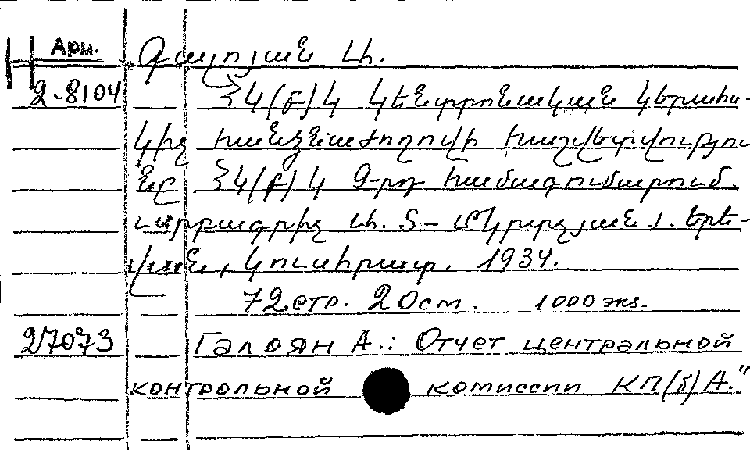 Арм. Գալոյան Ա.
2-8104 ՀԿ(բ)Կ Կենտրոնական վերահս-
կիչ հանձնաժողովի հաշվետվությու-
նը ՀԿ(բ)Կ 9-րդ համագումարում.
Խմբագրիչ Ա. Տ- Մկրտչյան Ս. Երե-
վան, Կուսհրատ. 1934.
72стр. 20см. 1000 экз.
27073 Галоян А.: Отчет центральной
контрольной комиссии КП(б)А."